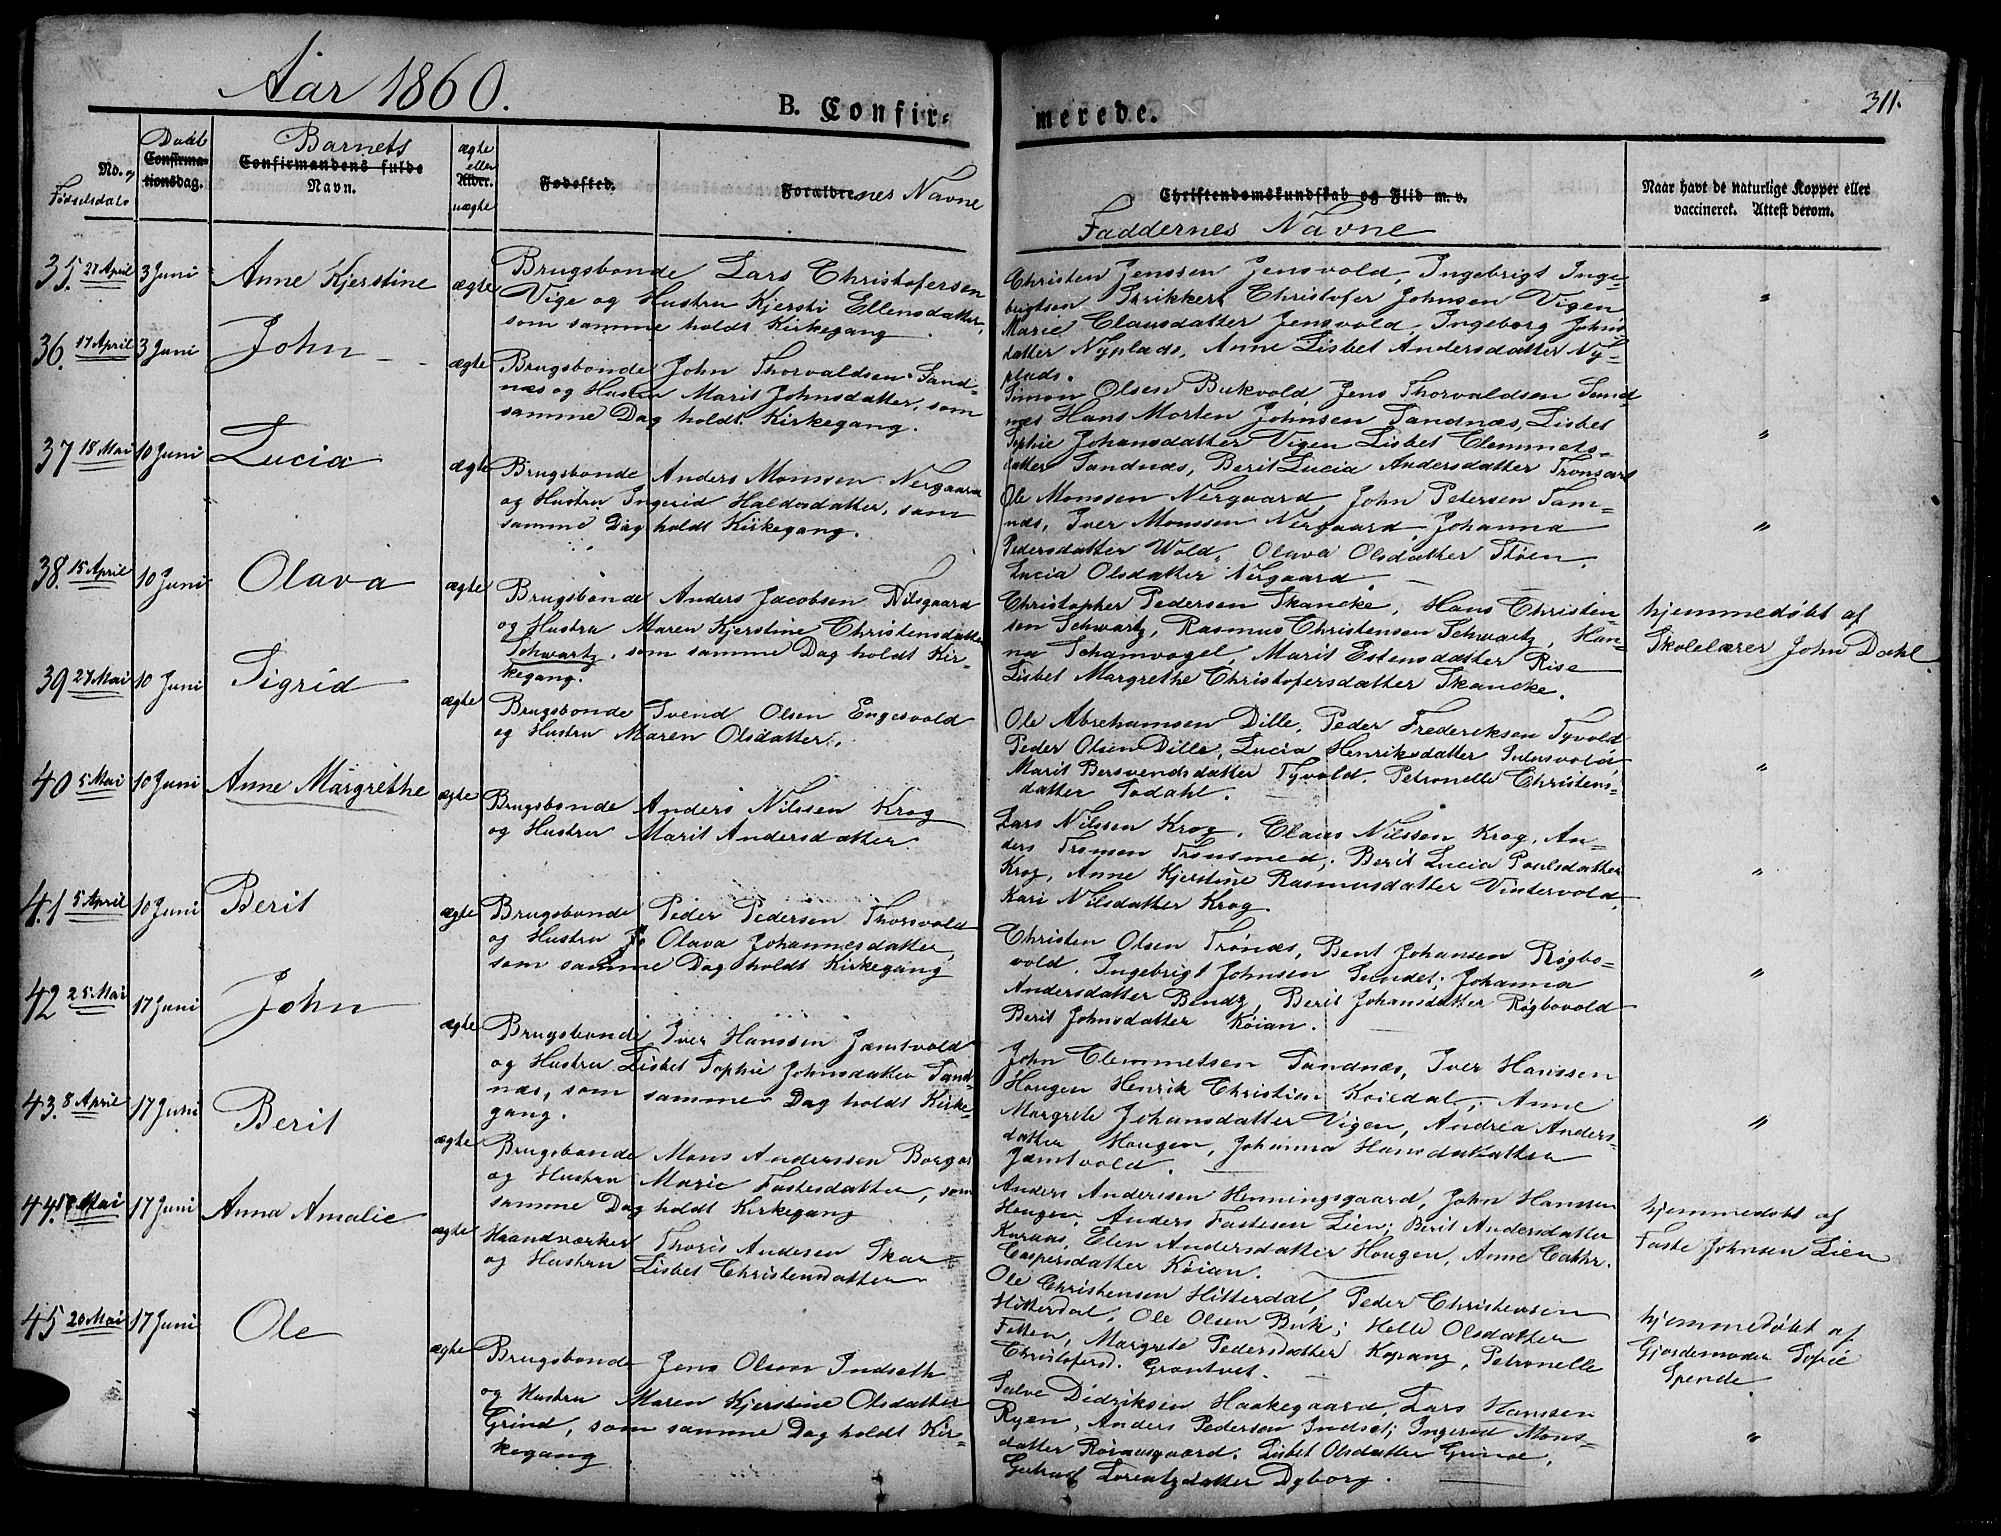 Aar 1860.
311.
B. Confir-
merede.
No. og Fødselsdato
Daab
Confirma-
tionsdag.
Barnets
Confirmandens fulde
Navn.
ægte
eller
Alder.
uægte
Fødested.
Forældrenes Navne
Christendomskundskab og Flid m. v.
Faddernes Navne
Naar havt de naturlige Kopper eller
vaccineret. Attest derom.
35. 27 April 3 Juni Anne Kjerstine ægte
Brugsbonde Lars Christofersen
Vige og Hustru Kjersti Ellensdatter,
som samme holdt Kirkegang.
Christen Jenssen Jensvold, Ingebrigt Inge-
brigtsen Christofer Johnsen Vigen
Marie Clausdatter Jensvold, Ingeborg Johns
datter Nyplads, Anne Lisbet Andersdatter Ny-
plads.
"
36. 17 April 3 Juni John ægte
Brugsbonde John Thorvaldsen Sand-
næs og Hustru Marit Johnsdatter, som
samme Dag holdt Kirkegang.
Simon Olsen Bukvold, Jens Thorvaldsen Sand-
næs Hans Morten Johnsen Sandnæs, Lisbet
Sophie Johansdatter Vigen Lisbet Clemmets-
datter Sandnæs, Berit Lucia Andersdatter
"
37 18 Mai 10 Juni Lucia ægte
Brugsbonde Anders Monssen Nergaard
og Hustru Ingerid Haldosdatter, som
samme Dag holdt Kirkegang.
Ole Monssen Nergaard John Petersen Tam-
næs, Iver Monssen Nergaard, Johanna
Pedersdatter Wold, Olava Olsdatter Støen,
Lucia Olsdatter Nergaard.
"
38. 15 April 10 Juni Olava ægte
Brugsbonde Anders Jacobsen Nilsgaard
og Hustru Maren Kjerstine Christensdatter
Schwartz, som samme Dag holdt Kir-
kegang.
Christopher Pedersen Skancke, Hans Christen-
sen Schwartz, Rasmus Christensen Schwartz, Han-
na Schamvogel, Marit Estensdatter Rise
Lisbet Margrethe Christofersdatter Skancke.
hjemmedøbt af
Skolelærer John Dahl
39 27 Mai 10 Juni Sigrid ægte
Brugsbonde Svend Olsen Engesvold
og Hustru Maren Olsdatter.
Ole Abrahamsen Dille, Peder Frederiksen Tyvold
Peder Olsen Dille, Lucia Henriksdatter
Marit Bersvendsdatter Tyvold, Petronelle Christens-
datter Sodahl.
"
40 5 Mai 10 Juni Anne Margrethe ægte
Brugsbonde Anders Nilssen Krog
og Hustru Marit Andersdatter
Lars Nilssen Krog, Claus Nilssen Krog, An-
ders Tronsen Tronsmed, Berit Lucia Poulsdatter
Krog, Anne Kjerstine Rasmusdatter Vintervold,
Kari Nilsdatter Krog.
"
41 5 April 10 Juni Berit ægte
Brugsbonde Peder Pedersen Thorsvold
og Hustru Olava Johannesdatter,
som samme Dag holdt Kirkegang
Christen Olsen Trønæs, Bent Johansen Røgbo-
vold, Ingebrigt Johnsen Sundet, Johanna
Andersdatter Bendz, Berit Johansdatter Røgbovold
Berit Johnsdatter Koian.
"
42 25 Mai 17 Juni John ægte
Brugsbonde Iver Hanssen Jamtvold
og Hustru Lisbet Sophie Johnsdatter Sand-
næs, som samme Dag holdt Kirke-
gang.
John Clemmetsen Sandnæs, Iver Hanssen
Hougen Henrik Christian Koiedal, Anne
Margrete Johansdatter Vigen, Andrea Anders-
datter Hougen, Johanna Hansdatter
Jamtvold.
"
43. 8 April 17 Juni Berit ægte
Brugsbonde Mons Anderssen Borgos
og Hustru Marie Fastesdatter, som
samme Dag holdt Kirkegang
Anders Anderssen Henningsgaard, John Hanssen
Hougen, Anders Fastesen Lien, Berit Andersdatter
Kuraas, Elen Andersdatter Hougen, Anne Cathr.
Caspersdatter Koian.
hjemmedøbt af
Faste Johnsen Lien
44. Mai 17 Juni Anna Amalie ægte
Haandværker Thoris Andersen Skar
og Hustru Lisbet Christensdatter
Ole Christensen Hitterdal, Peder Christensen
Hitterdal, Ole Olsen Buk, Helle Olsdatter
Feten, Margrete Pedersdatter Kopang, Petronelle
Christofersd. Grøntvet.
hjemmedøbt af
Gjordemoder Sofie
Spende.
45 20 Mai 17 Juni Ole ægte
Brugsbonde Jens Olsen Indseth
og Hustru Maren Kjerstine Olsdatter
Grind, som samme Dag holdt Kir-
kegang
Salve Didriksen Haakegaard, Lars Hanssen
Ryen, Anders Pedersen Indset, Ingerid Mons-
datter Røraasgaard, Lisbet Olsdatter Grind,
Gertrud Lorentzdatter Dyborg.
"